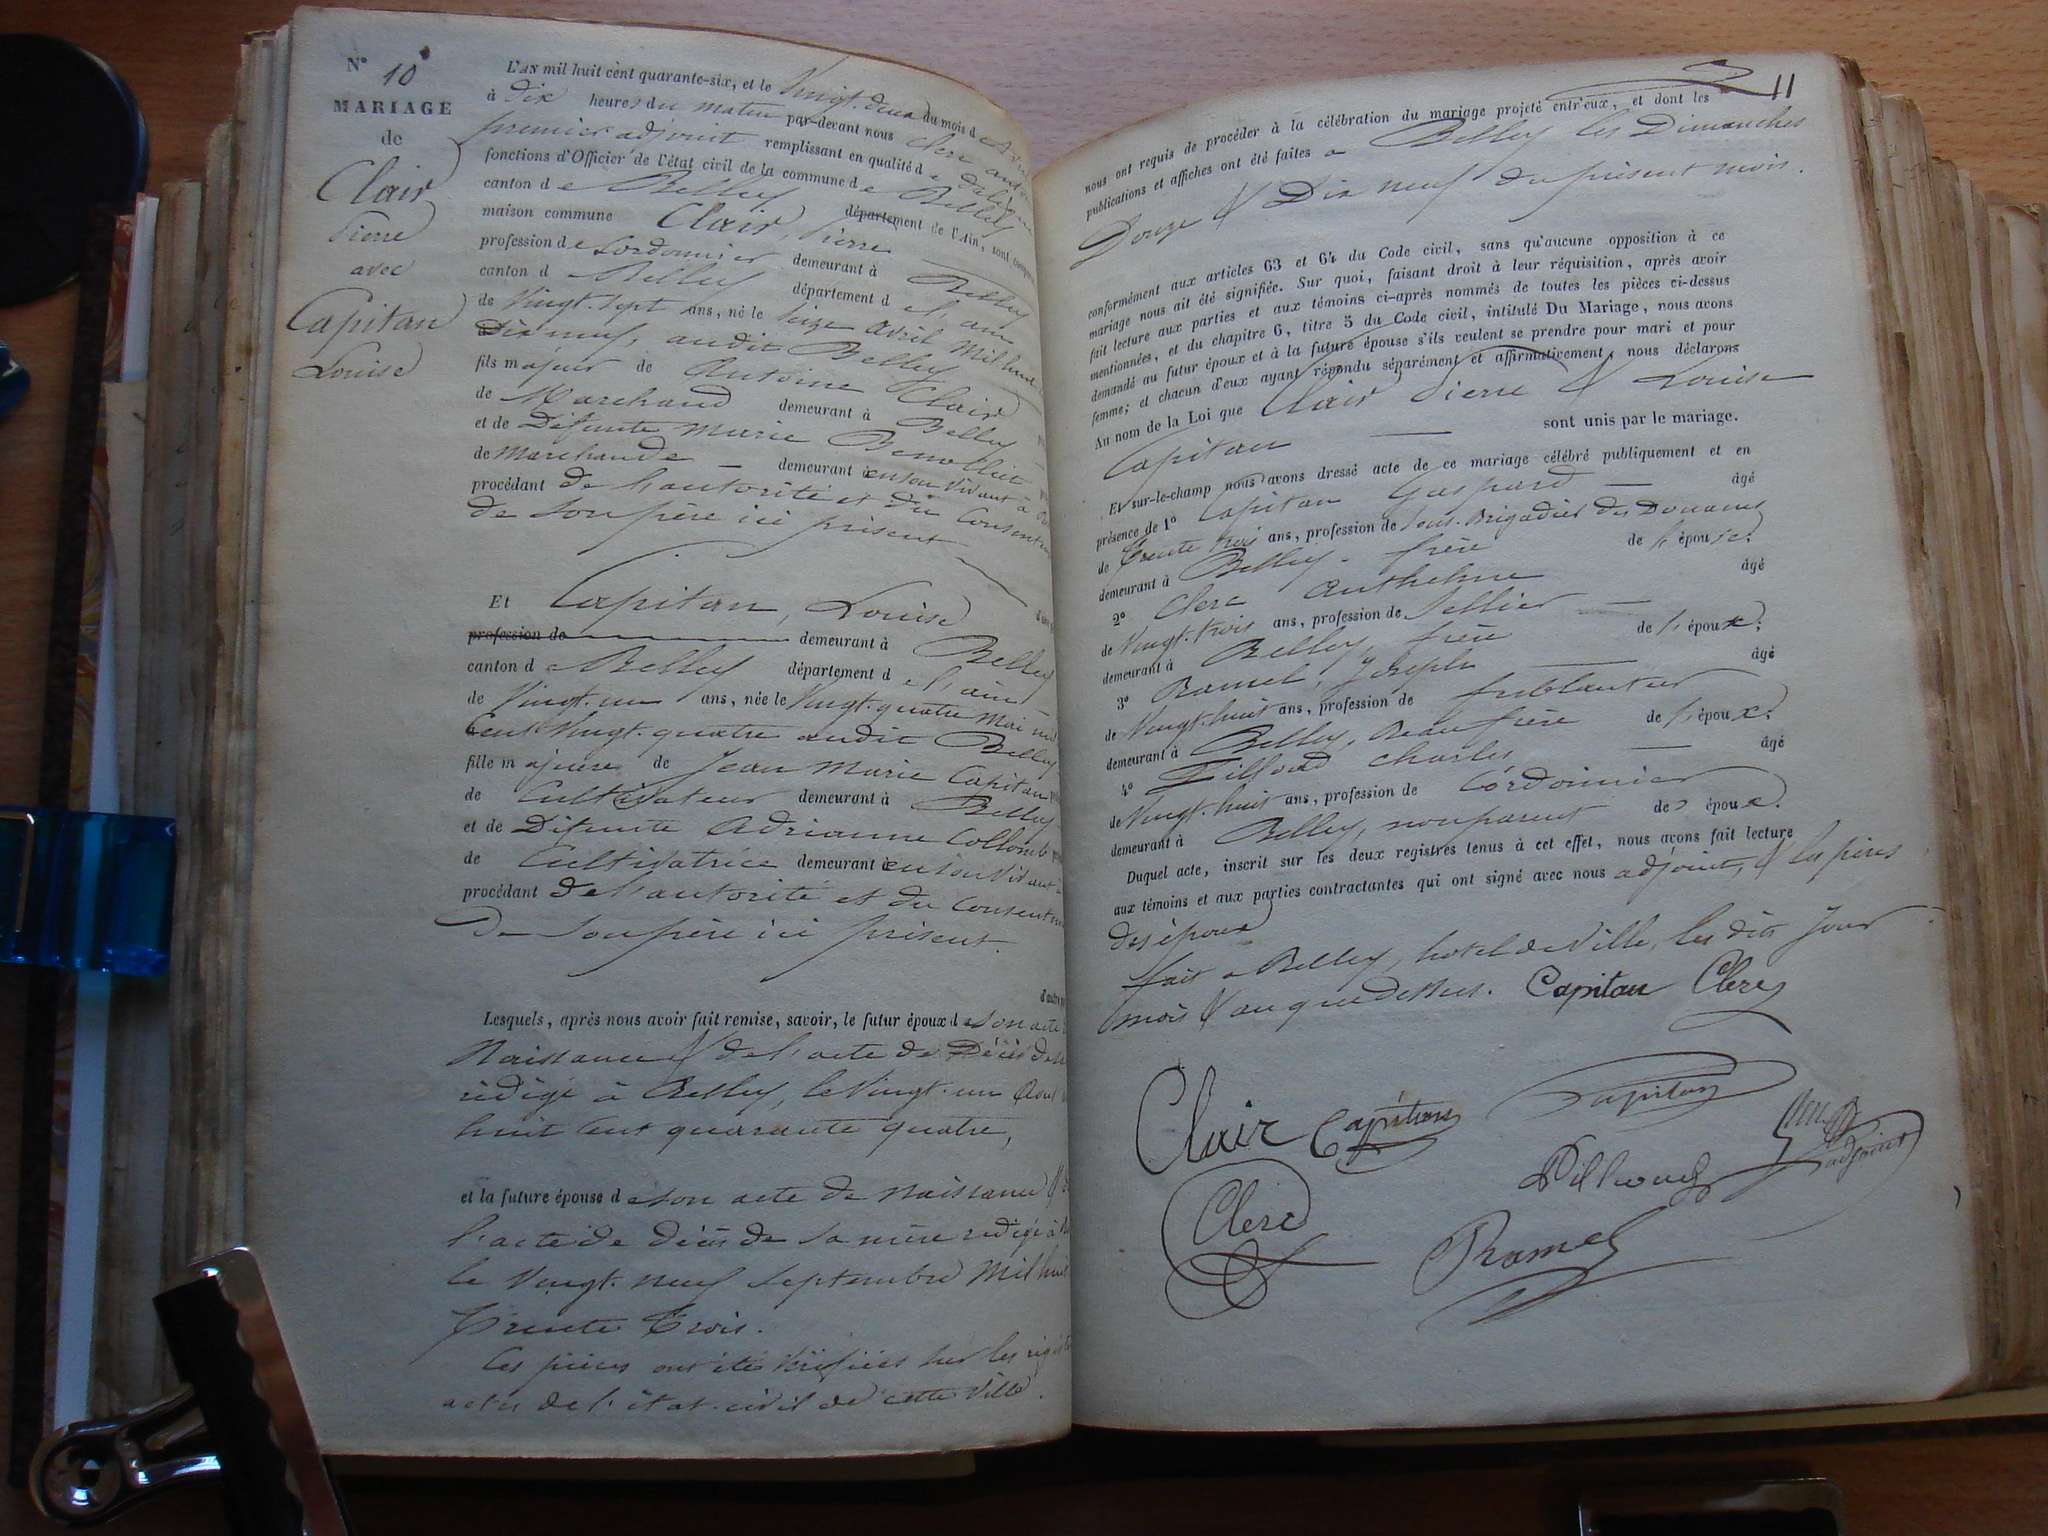 N° 10
MARIAGE
de
Clair
Pierre
avec
Capitan
Louise
L'AN mil huit cent quarante-six, et le Vingt-deux du mois d
à dix heures du matin par-devant nous Clerc
premier adjoint remplissant en qualité de délégué
fonctions d'Officier de l'état civil de la commune de Belley
canton de Belley département de l'Ain, sont
maison commune Clair, Pierre
profession de Cordonnier demeurant à Belley
canton d Belley département d el' ain
de Vingt-sept ans, né le Seize Avril Mil huit
Dix neuf, audit Belley
fils majeur de Antoine Clair
de Marchand demeurant à Belley
et de Défunte Marie
de Marchande demeurant en son Vivant à
procédant de l'autorité et du Consent
de Son père ici présent
Et Capitan, Louise
profession de demeurant à Belley
canton de Belley département de l'ain
de Vingt-un ans, née le Vingt-quatre Mai mil
Cent Vingt-quatre audit Belley
fille majeure de Jean Marie Capitan
de Cultivateur demeurant à Belley
et de Défunte Adrianne Collomb
de Cultivatrice demeurant en son Vivant à
procédant de l'autorité et du Consent
de Son père ici présent.
Lesquels, après nous avoir fait remise, savoir, le futur époux de son acte
Naissance & de l'acte de Décès de
rédigé à Belley, le Vingt-un Aout
huit Cent quarante quatre,
et la future épouse de son acte de Naissance &
l'acte de décès de sa mère rédigé à
le Vingt-neuf Septembre Mil huit
Trente Trois.
Ces pièces ont été Vérifiées sur les
actes de l'état-civil de cette Ville.
11
nous ont requis de procéder à la célébration du mariage projeté entr'eux, et dont les
publications et affiches ont été faites à Belley les Dimanches
Douze & Dix neuf du présent mois.
conformément aux articles 63 et 64 du Code civil, sans qu'aucune opposition à ce
mariage nous ait été signifiée. Sur quoi, faisant droit à leur réquisition, après avoir
fait lecture aux parties et aux témoins ci-après nommés de toutes les pièces ci-dessus
mentionnées, et du chapitre 6, titre 5 du Code civil, intitulé Du Mariage, nous avons
demandé au futur époux et à la future épouse s'ils veulent se prendre pour mari et pour
femme; et chacun d'eux ayant répondu séparément et affirmativement, nous déclarons
Au nom de la Loi que Clair Pierre & Louise
Capitan sont unis par le mariage.
Et sur-le-champ nous avons dressé acte de ce mariage célébré publiquement et en
présence de 1° Capitan Gaspard âgé
de Trente Trois ans, profession de Sous-Brigadier des Douanes
demeurant à Belley - frère de l'épouse.
2° Clerc Anthelme âgé
de Vingt-trois ans, profession de Sellier
demeurant à Belley, frère de l'époux.
3° Ramel, Joseph âgé
de Vingt-huit ans, profession de ferblantier
demeurant à Belley, Beau frère de l'époux.
4° Pilloud Charles âgé
de Vingt-huit ans, profession de Cordonnier
demeurant à Belley, non parent des époux.
Duquel acte, inscrit sur les deux registres tenus à cet effet, nous avons fait lecture
aux témoins et aux parties contractantes qui ont signé avec nous adjoint, & les pères
des époux
fait à Belley, hotel de Ville, les dits Jour
mois & an que dessus. Capitan Clerc
Clair Capitan Capitan
Pilloud adjoint
Clerc
Ramel